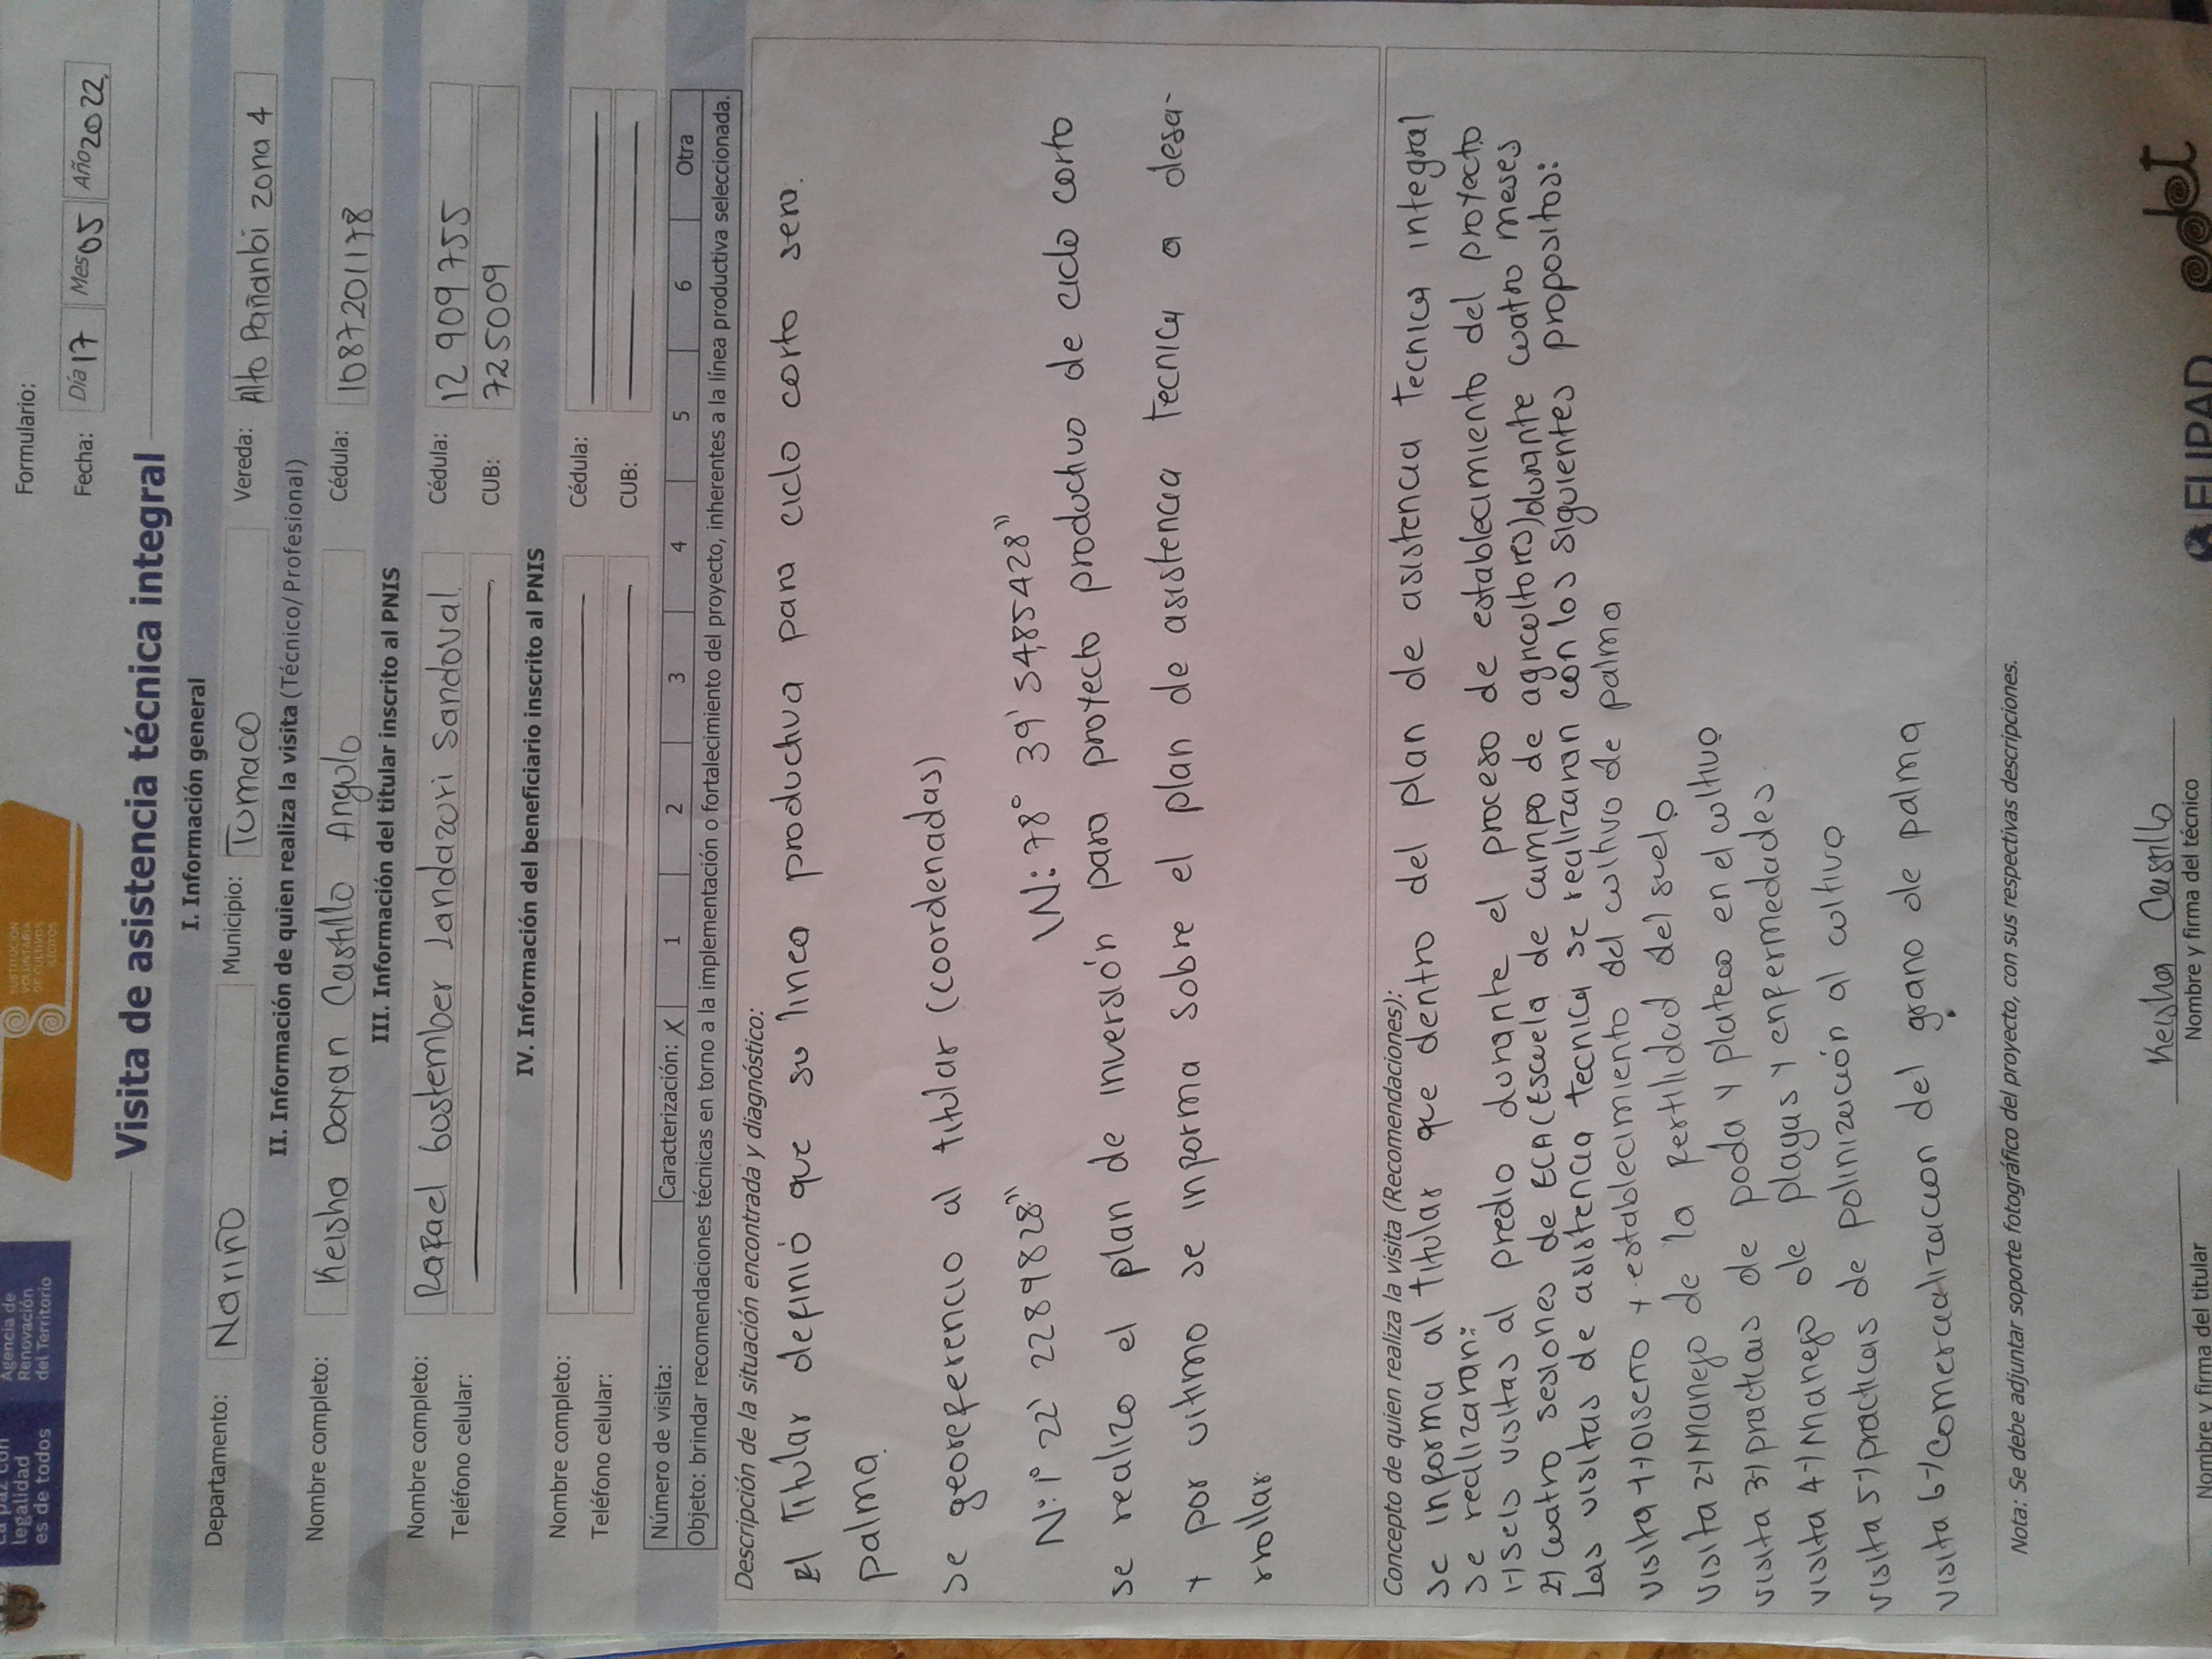 La paz con
legalidad
es de todos
Agencia de
Renovación
del Territorio
SUSTITUCIÓN
VOLUNTARIA
DE CULTIVOS
ILÍCITOS
Formulario:
Fecha: Día 17 Mes 05 Año 2022
Visita de asistencia técnica integral
I. Información general
Departamento: Nariño Municipio: Tumaco Vereda: Alto Pañanbi zona 4
II. Información de quien realiza la visita (Técnico/Profesional)
Nombre completo: Keisha Dayan Castillo Angulo Cédula: 1087201178
III. Información del titular inscrito al PNIS
Nombre completo: Rafael bostember Landazuri Sandoval Cédula: 12 909 755
Teléfono celular: CUB: 725009
IV. Información del beneficiario inscrito al PNIS
Nombre completo: Cédula:
Teléfono celular: CUB:
Número de visita: Caracterización: X 1 2 3 4 5 6 Otra
Objeto: brindar recomendaciones técnicas en torno a la implementación o fortalecimiento del proyecto, inherentes a la línea productiva seleccionada.
Descripción de la situación encontrada y diagnóstico:
El Titular definio que su linea productiva para ciclo corto sera.
palma.
se georeferencio al titular (coordenadas)
N: 1° 22' 22 89 828" W: 78° 39' 54,85428"
se realizo el plan de inversión para proyecto productivo de ciclo corto
y por ultimo se informa sobre el plan de asistencia tecnica a desa-
rrollar.
Concepto de quien realiza la visita (Recomendaciones):
se informa al titular que dentro del plan de asistencia tecnica integral
se realizaran:
1-) seis visitas al predio durante el proceso de establecimiento del proyecto
2) cuatro sesiones de ECA (Escuela de campo de agricultores) durante cuatro meses
Las visitas de asistencia tecnica se realizaran con los siguientes propositos:
visita 1-) Diseño y establecimiento del cultivo de palma
visita 2-) Manejo de la fertilidad del suelo
visita 3-) practicas de poda y plateo en el cultivo
visita 4-) Manejo de plagas y enfermedades.
visita 5-) practicas de polinización al cultivo
visita 6-) Comercialización del grano de palma
Nota: Se debe adjuntar soporte fotográfico del proyecto, con sus respectivas descripciones.
Keisha Castillo
Nombre y firma del titular Nombre y firma del técnico
ELIPAD